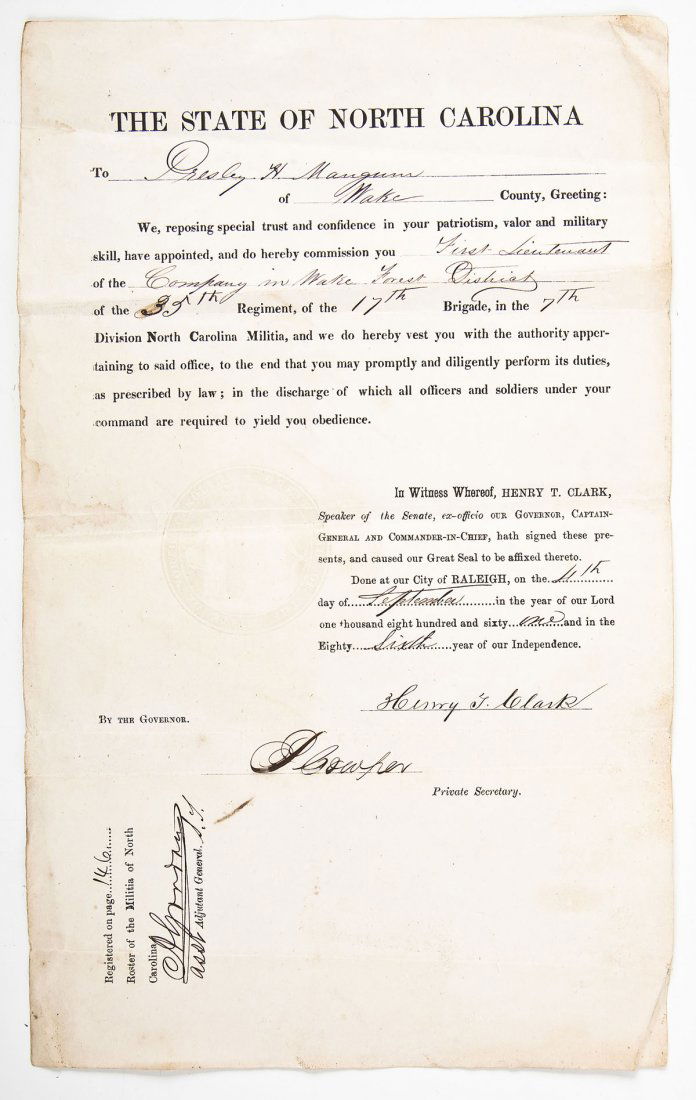 THE STATE OF NORTH CAROLINA
To Presley H. Mangum
of Wake County, Greeting:
We, reposing special trust and confidence in your patriotism, valor and military
skill, have appointed, and do hereby commission you First Lieutenant
of the Company in Wake Forest District
of the 35th Regiment, of the 17th Brigade, in the 7th
Division North Carolina Militia, and we do hereby vest you with the authority apper-
taining to said office, to the end that you may promptly and diligently perform its duties,
as prescribed by law; in the discharge of which all officers and soldiers under your
command are required to yield you obedience.
In Witness Whereof, HENRY T. CLARK,
Speaker of the Senate, ex-officio OUR GOVERNOR, CAPTAIN-
GENERAL AND COMMANDER-IN-CHIEF, hath signed these pre-
sents, and caused our Great Seal to be affixed thereto.
Done at our City of RALEIGH, on the 11th
day of September in the year of our Lord
one thousand eight hundred and sixty one and in the
Eighty Sixth year of our Independence.
Henry T. Clark
BY THE GOVERNOR.
P Cowper
Private Secretary.
Registered on page 146
Roster of the Militia of North
Carolina
A Gordon
Asst Adjutant General.